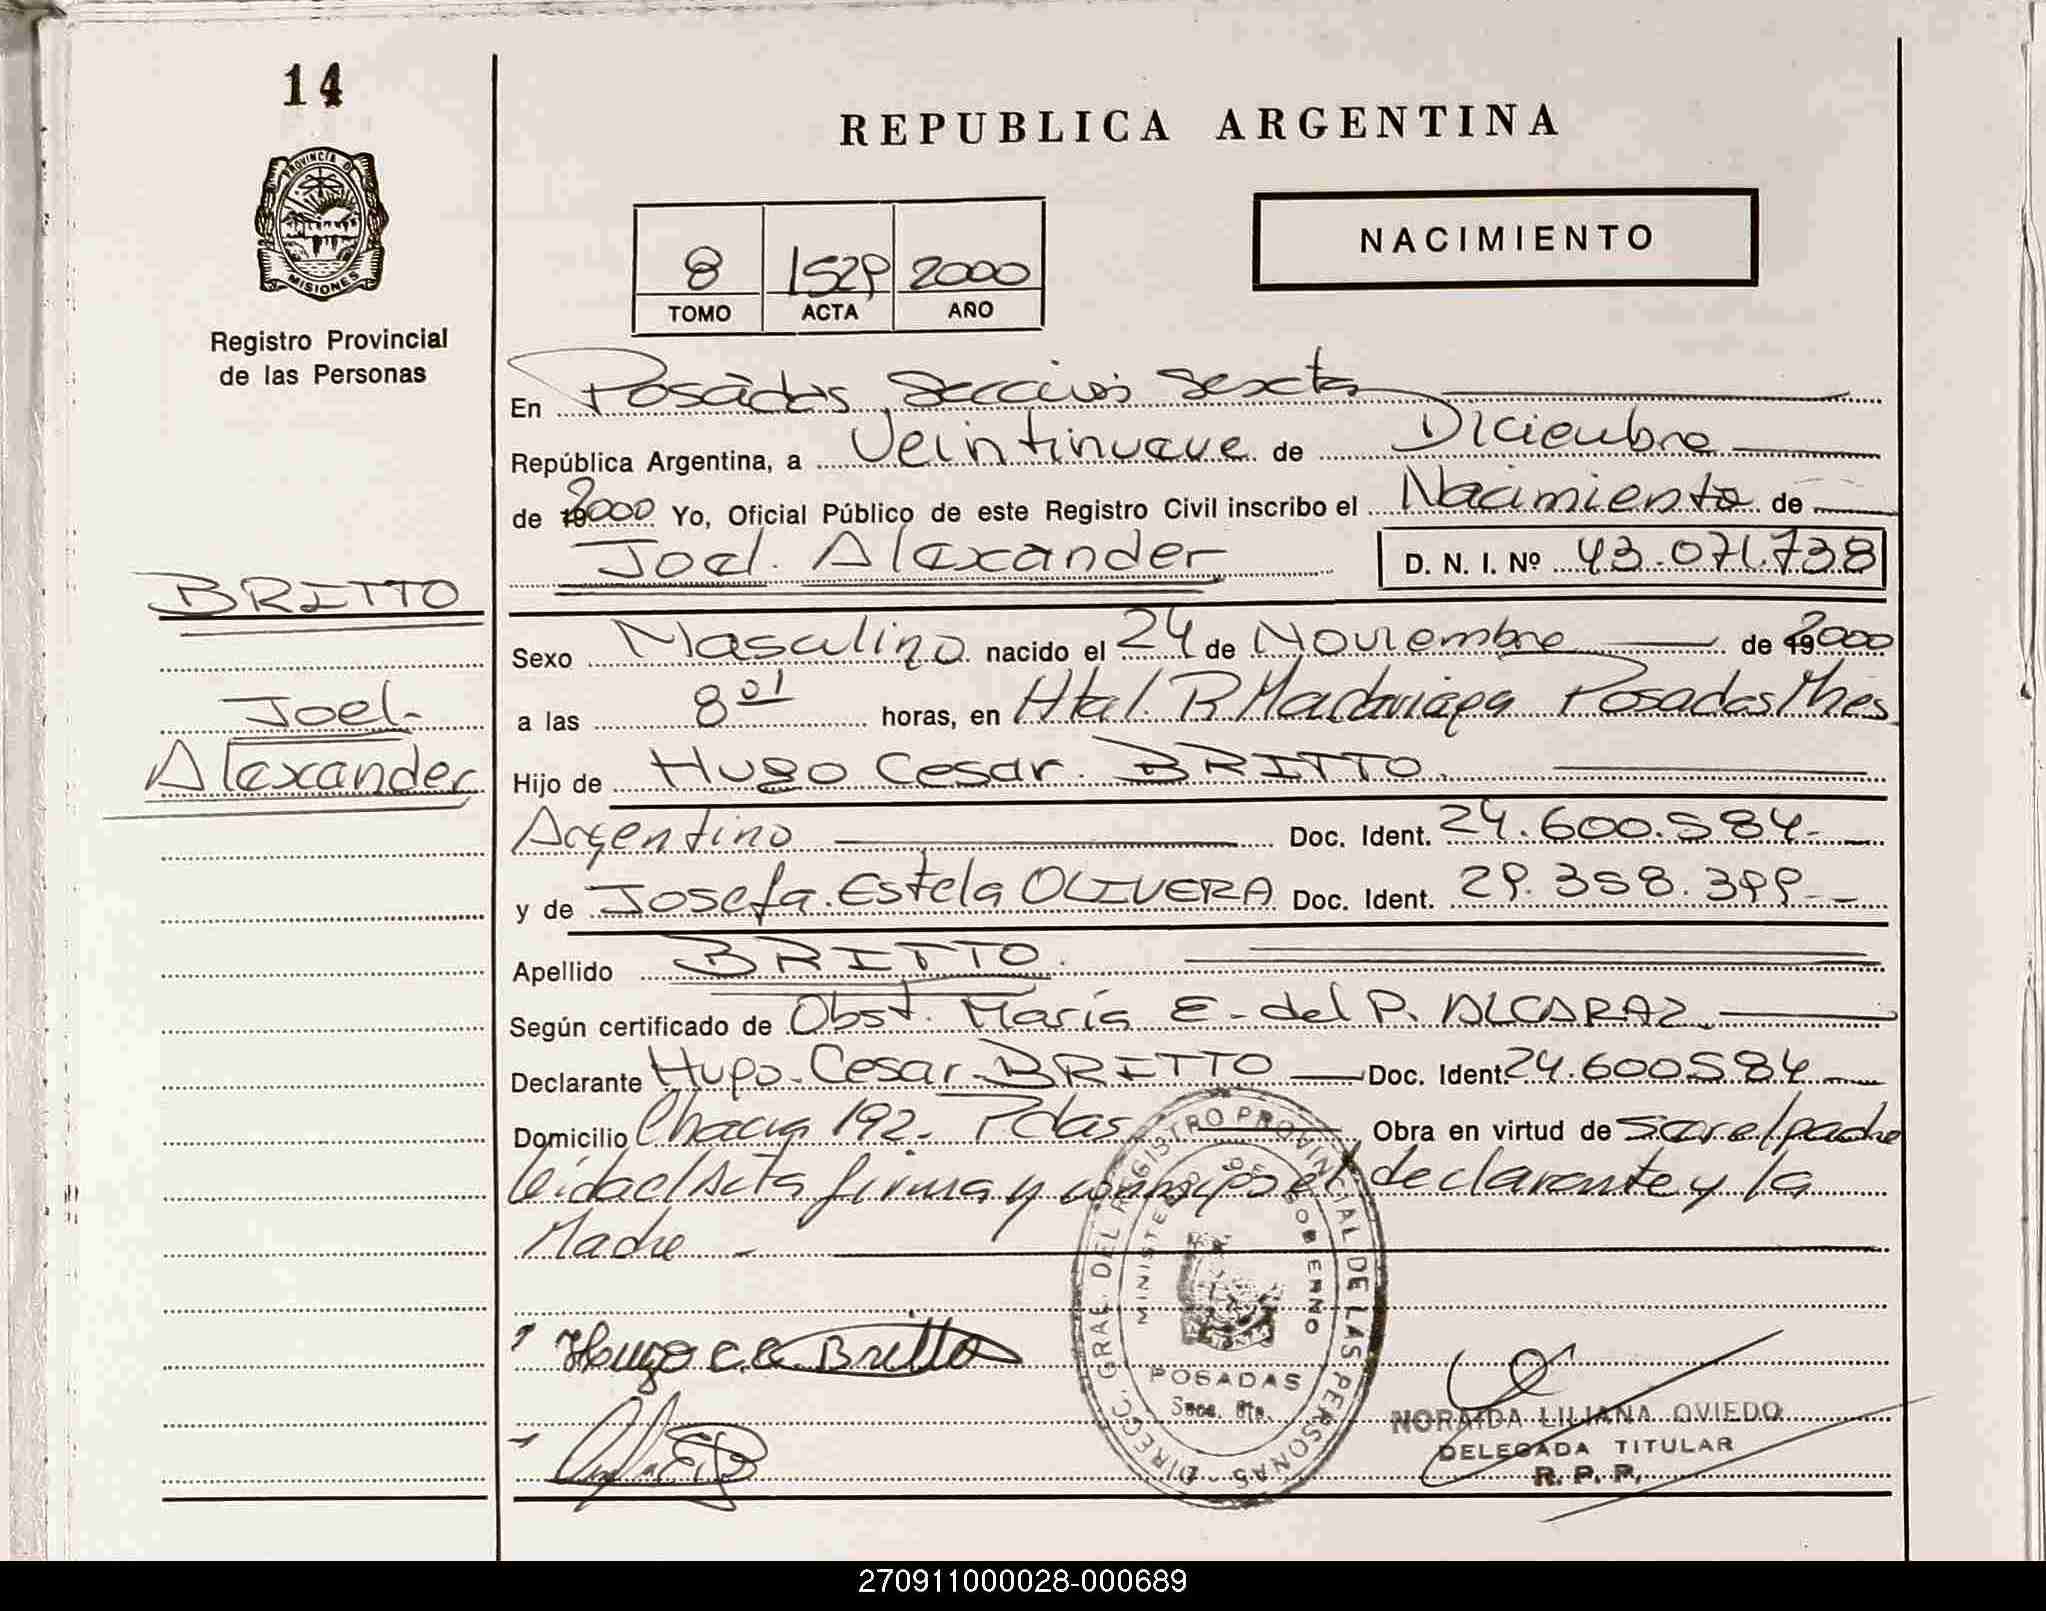 14
PROVINCIA DE
MISIONES
Registro Provincial
de las Personas
BRITTO
Joel
Alexander
REPUBLICA ARGENTINA
8 1529 2000
TOMO ACTA AÑO
NACIMIENTO
En Posadas, Sección Sexta
República Argentina, a Veintinueve de Diciembre
de 2000 Yo, Oficial Público de este Registro Civil inscribo el Nacimiento de
Joel Alexander D. N. I. Nº 43.071.738
Sexo Masculino nacido el 24 de Noviembre de 2000
a las 8 01 horas, en Htal. R Madariaga Posadas Mnes
Hijo de Hugo Cesar BRITTO
Argentino Doc. Ident. 24.600.584
y de Josefa Estela OLIVERA Doc. Ident. 29.358.399
Apellido BRITTO
Según certificado de Obst. María E. del P. ALCARAZ
Declarante Hugo Cesar BRITTO Doc. Ident. 24.600584
Domicilio Chacra 192 - Pdas Obra en virtud de ser el padre
leída el Acta firma y conmigo el declarante y la
Madre
Hugo C. Britto
DIRECC. GRAL. DEL REGISTRO PROVINCIAL DE LAS PERSONAS
MINISTERIO DE GOBIERNO
POSADAS
Secc. 6ta.
NORAIDA LILIANA OVIEDO
DELEGADA TITULAR
R. P. P.
270911000028-000689